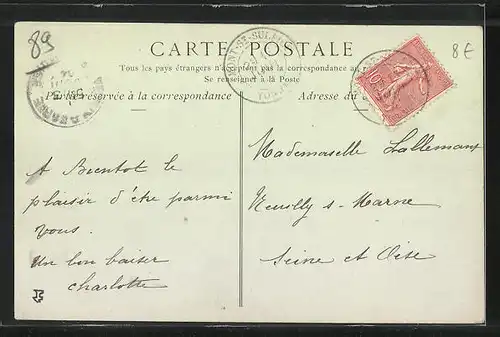 89
8€
CARTE POSTALE
Tous les pays étrangers n'acceptent pas la correspondance au
Se renseigner à la Poste
Partie réservée à la correspondance
Adresse du
A Bientot le
plaisir d'être parmi
vous.
Un bon baiser
charlotte
Mademoiselle Lallemant
Neuilly s- Marne
Seine et Oise